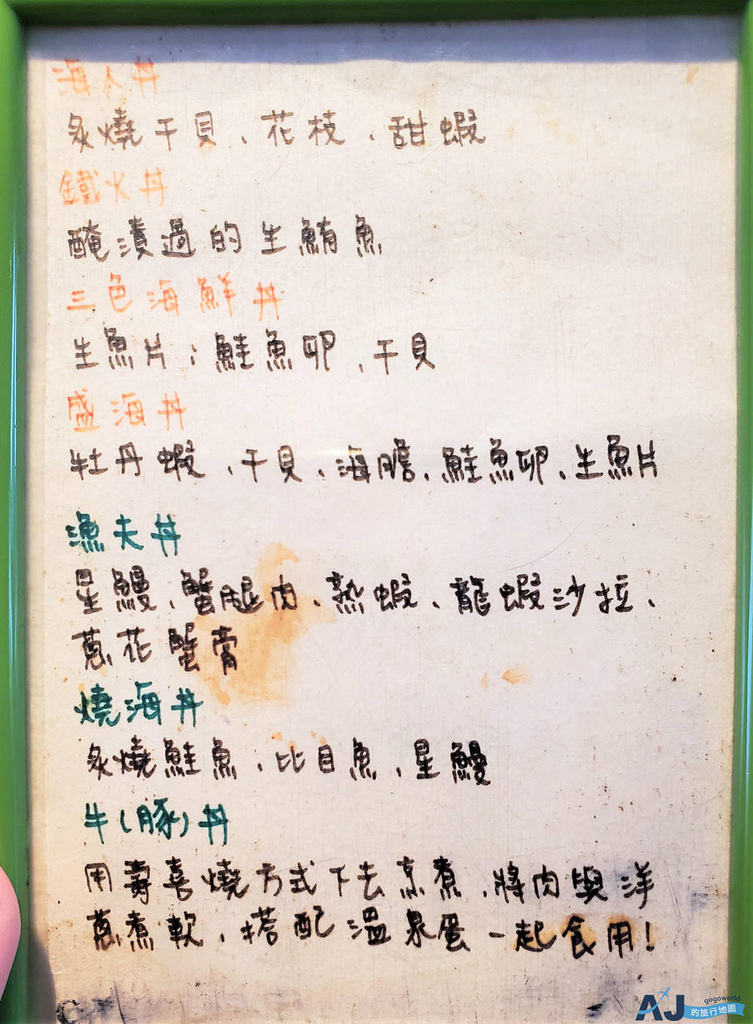 海人丼
炙燒干貝、花枝、甜蝦
鐵火丼
醃漬過的生鮪魚
三色海鮮丼
生魚片、鮭魚卵、干貝
盛海丼
牡丹蝦、干貝、海膽、鮭魚卵、生魚片
漁夫丼
星鰻、蟹腿肉、熟蝦、龍蝦沙拉、
蔥花蟹膏
燒海丼
炙燒鮭魚、比目魚、星鰻
牛(豚)丼
用壽喜燒方式下去烹煮,將肉與洋
蔥煮軟,搭配溫泉蛋一起食用!
gogoworld
AJ的旅行地圖